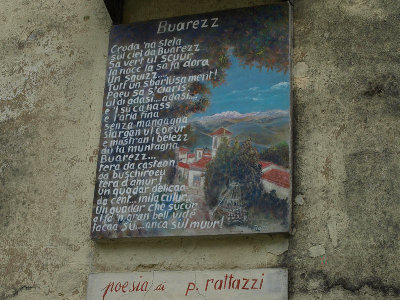 Buarezz
Croda 'na stela
sul ciel da Buarezz
Sa vert ul scuur
la nocc la sa fa dora
Un sguizz...
Tutt un sbarlusament!
Poeu sa s'ciaris
ul dì adasi... adasi..
e 'l su ca nass
e l'aria fina
senza mangagna
slargan ul coeur
e mostran i belezz
du la muntagna
Buarezz...
tera da
da buschiroeu
tera d'amur!
Un quadar
da cent... mila culur..
Un quadar che sucur
bel vidé
tacaa su... anca sul muur!
poesia di p. rattazzi